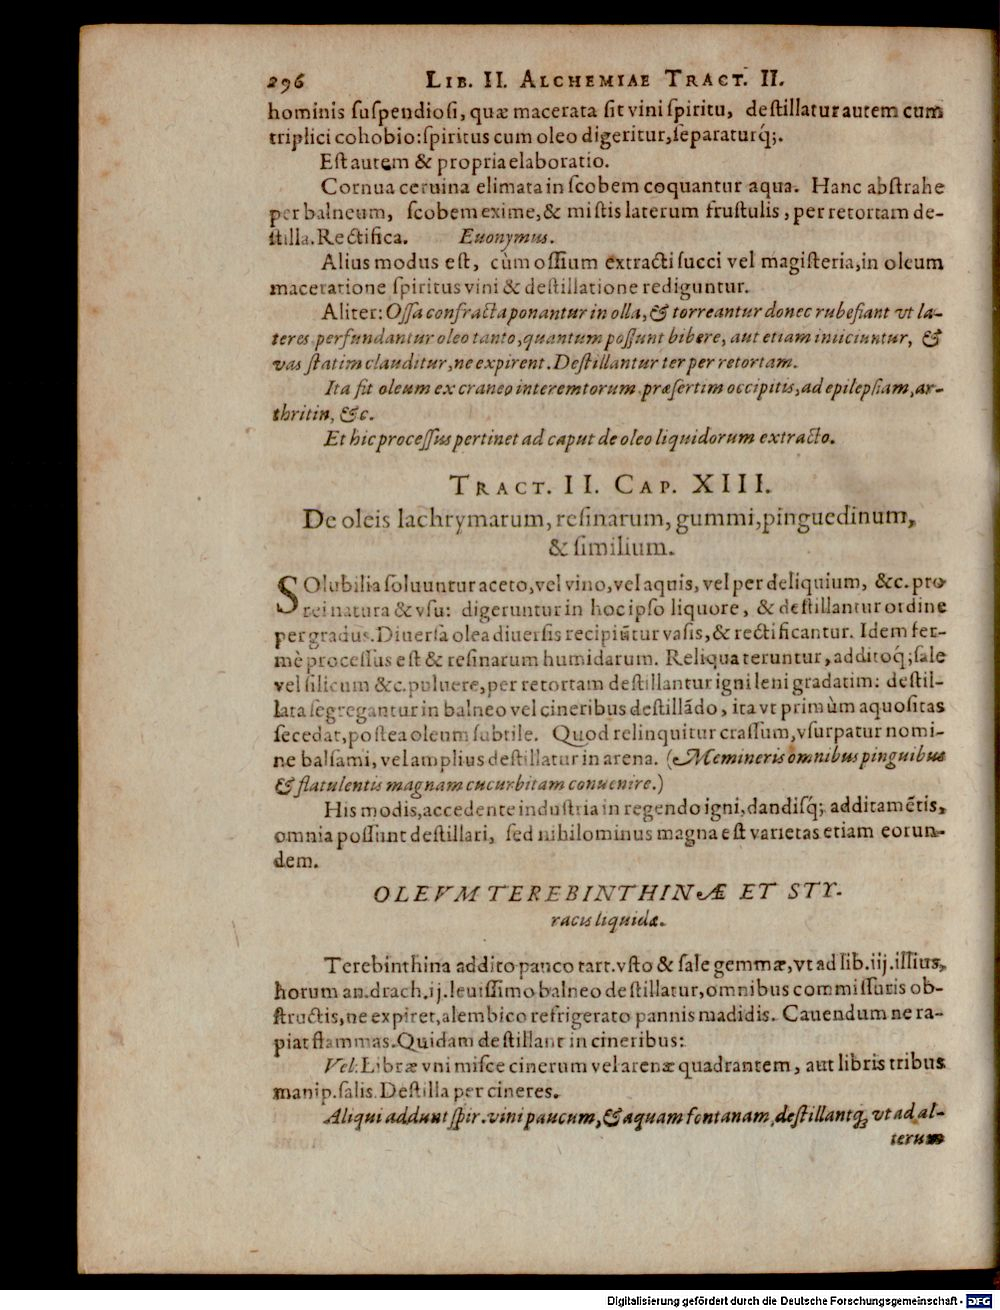 296 LIB. II. ALCHEMIAE TRACT. II.
hominis suspendiosi, quæ macerata sit vini spiritu, destillatur autem cum
triplici cohobio: spiritus cum oleo digeritur, separaturq́;.
Est autem & propria elaboratio.
Cornua ceruina elimata in scobem coquantur aqua. Hanc abstrahe
per balneum, scobem exime, & mistis laterum frustulis, per retortam de-
stilla. Rectifica. Euonymus.
Alius modus est, cùm ossium extracti succi vel magisteria, in oleum
maceratione spiritus vini & destillatione rediguntur.
Aliter: Ossa confracta ponantur in olla, & torreantur donec rubefiant vt la-
teres, perfundantur oleo tanto, quantum possunt bibere, aut etiam iniiciuntur, &
vas statim clauditur, ne expirent. Destillantur ter per retortam.
Ita fit oleum ex craneo interemtorum, præsertim occipitis, ad epilepsiam, ar-
thritin, &c.
Et hic processus pertinet ad caput de oleo liquidorum extracto.
TRACT. II. CAP. XIII.
De oleis lachrymarum, resinarum, gummi, pinguedinum,
& similium.
SOlubilia soluuntur aceto, vel vino, vel aquis, vel per deliquium, &c. pro
rei natura & vsu: digeruntur in hoc ipso liquore, & destillantur ordine
per gradus. Diuersa olea diuersis recipiũtur vasis, & rectificantur. Idem fer-
mè processus est & resinarum humidarum. Reliqua teruntur, additoq́; sale
vel silicum &c. puluere, per retortam destillantur igni leni gradatim: destil-
lata segregantur in balneo vel cineribus destillādo, ita vt primùm aquositas
secedat, postea oleum subtile. Quod relinquitur crassum, vsurpatur nomi-
ne balsami, vel amplius destillatur in arena. (Memineris omnibus pinguibus
& flatulentis magnam cucurbitam conuenire.)
His modis, accedente industria in regendo igni, dandisq́; additamētis,
omnia possunt destillari, sed nihilominus magna est varietas etiam eorun-
dem.
OLEVM TEREBINTHINÆ ET STY-
racis liquidæ.
Terebinthina addito pauco tart. vsto & sale gemmæ, vt ad lib. iij. illius,
horum an. drach. ij. leuissimo balneo destillatur, omnibus commissuris ob-
structis, ne expiret, alembico refrigerato pannis madidis. Cauendum ne ra-
piat flammas. Quidam destillant in cineribus:
Vel: Libræ vni misce cinerum vel arenæ quadrantem, aut libris tribus
manip. salis. Destilla per cineres.
Aliqui addunt spir. vini paucum, & aquam fontanam, destillantq́; vt ad al-
terum
Digitalisierung gefördert durch die Deutsche Forschungsgemeinschaft - DFG